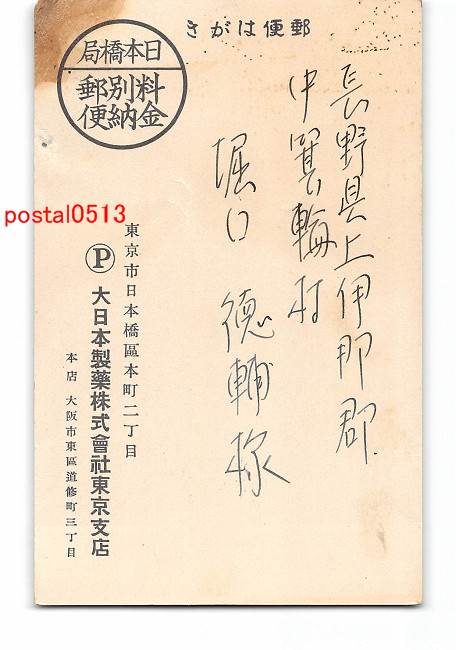 郵便はがき
日本橋局
料金別納郵便
長野県上伊那郡
中箕輪村
堀口 徳輔様
東京市日本橋區本町二丁目
Ⓟ 大日本製藥株式會社東京支店
本店 大阪市東區道修町三丁目
postal0513